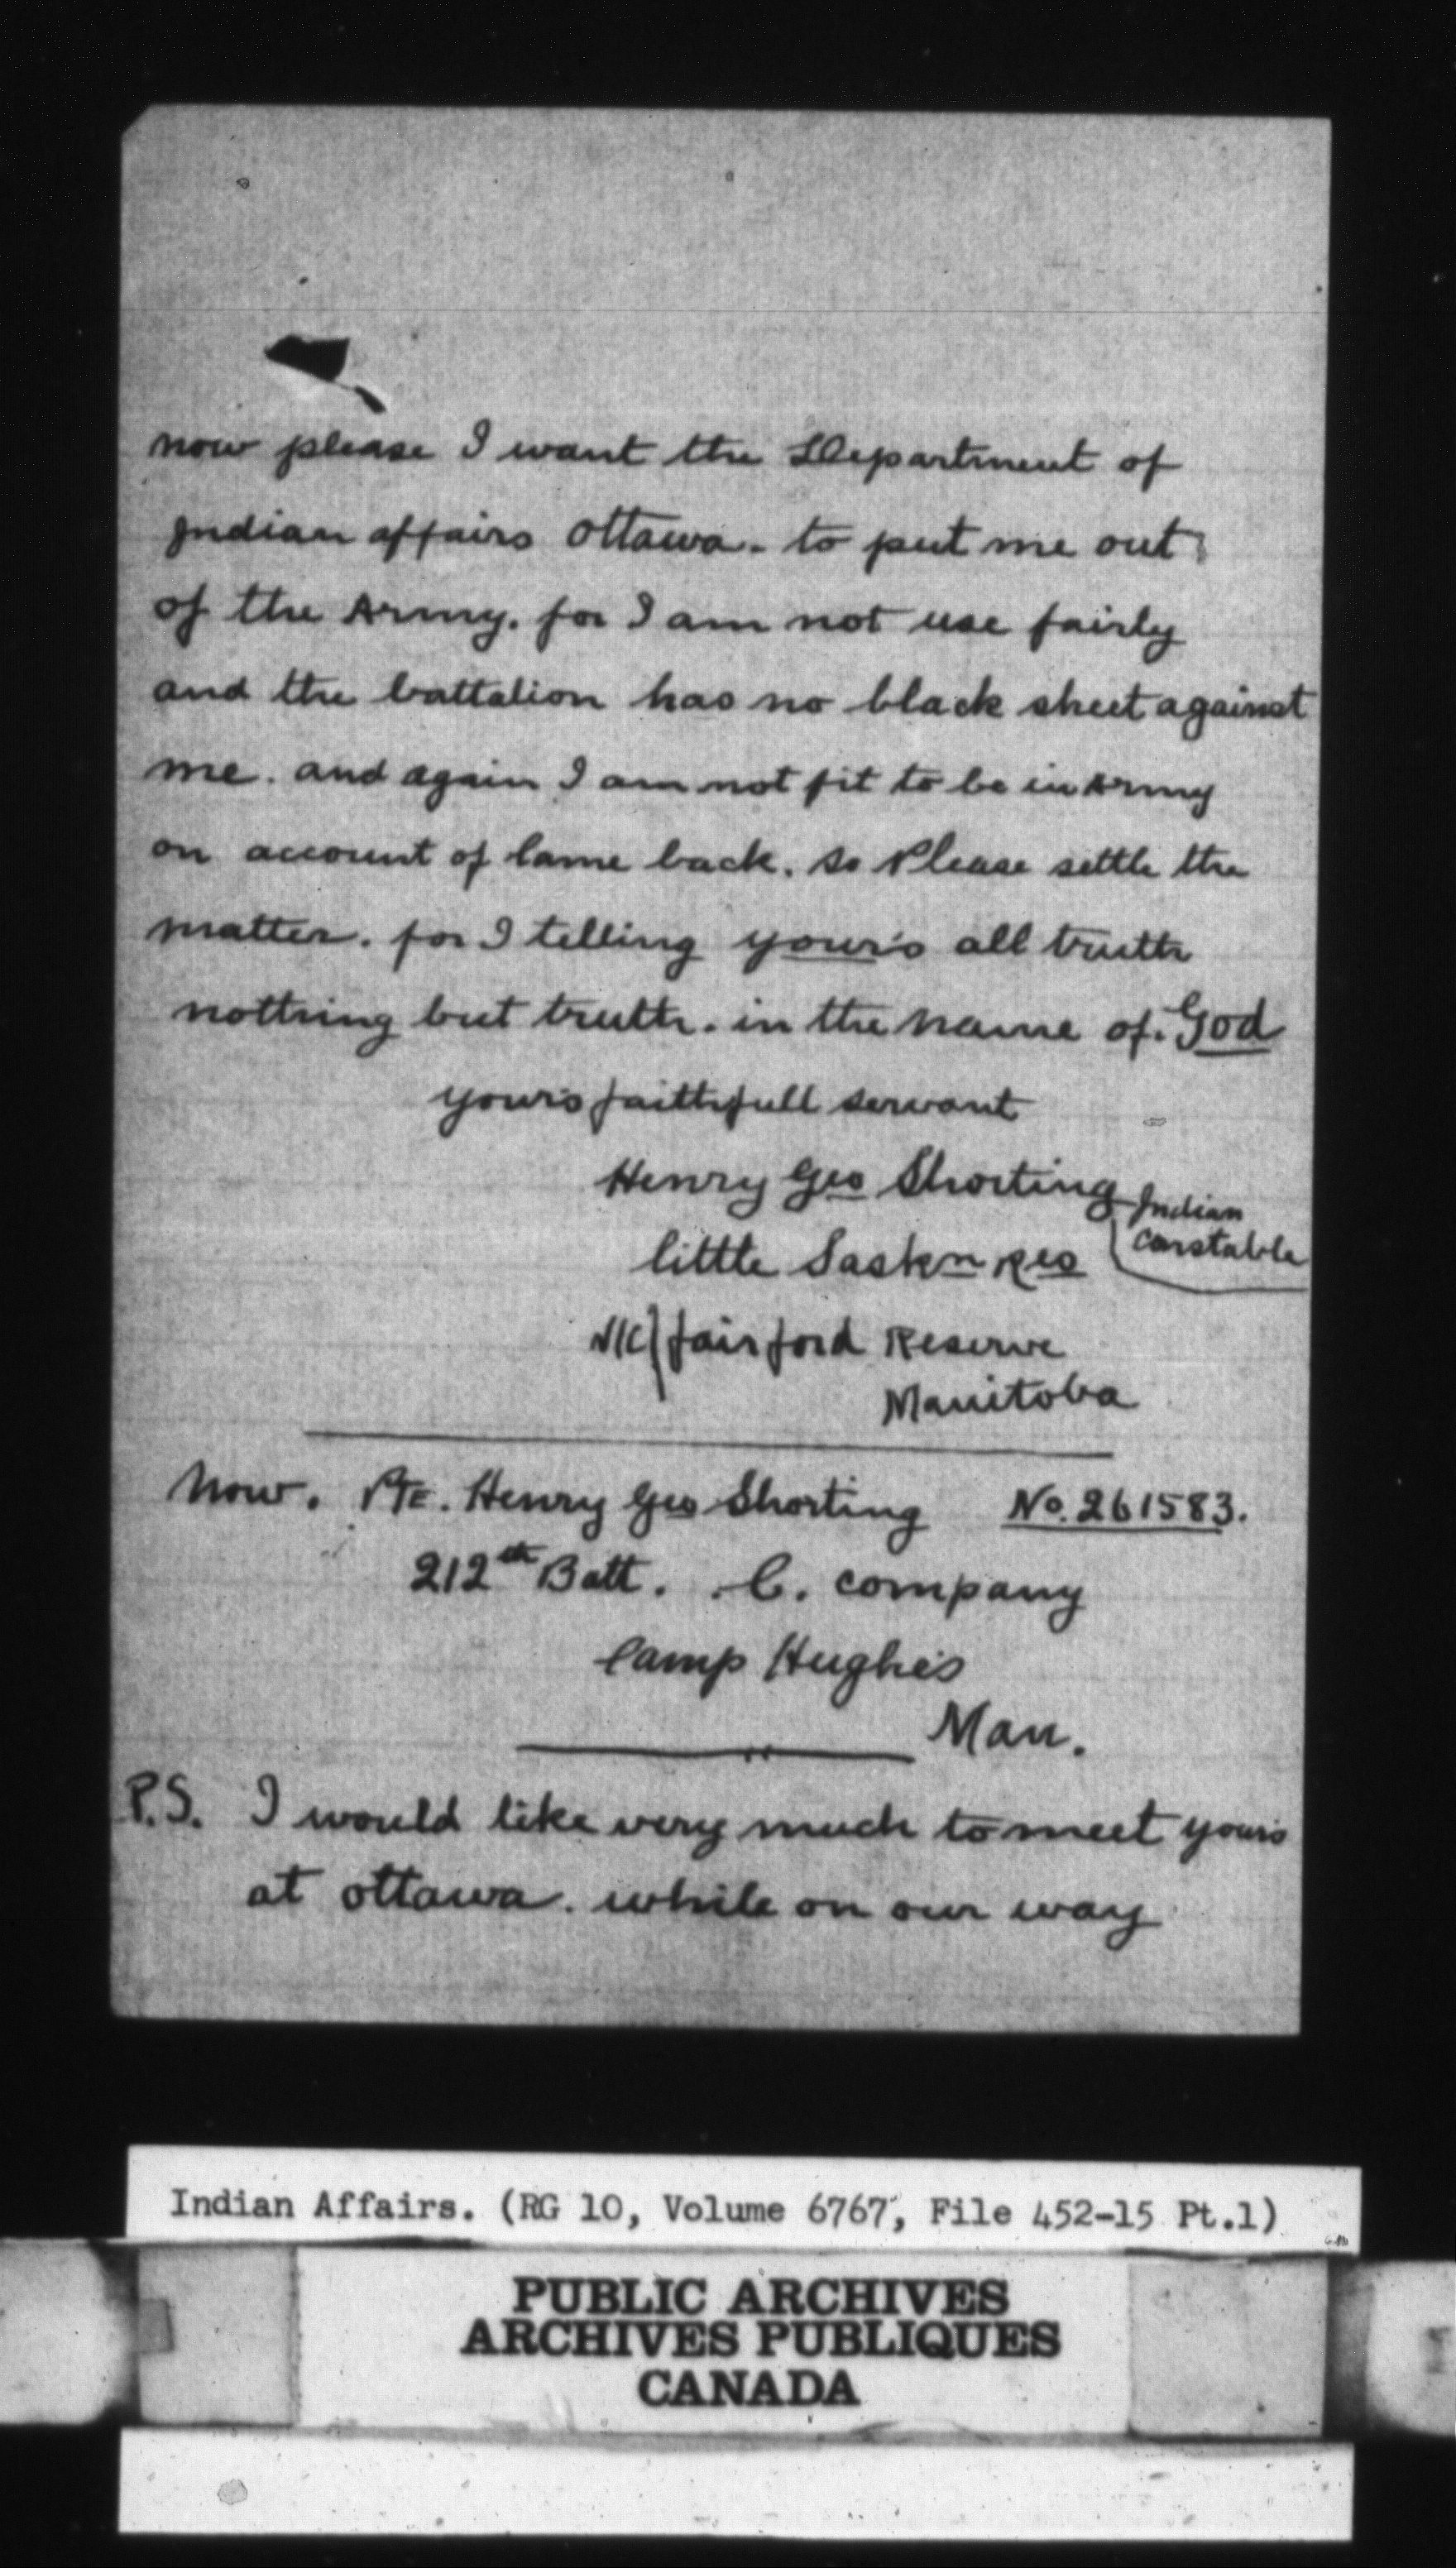 now please I want the Department of
Indian affairs Ottawa. to put me out
of the Army. for I am not use fairly
and the battalion has no black sheet against
me. and again I am not fit to be in Army
on account of lame back. so Please settle the
matter. for I telling your's all truth
nothing but truth. in the name of. God
your's faithfull servant
Henry Geo Shorting Indian
constable
little Saskn Res
fairford Reserve
Manitoba
Now. PTE. Henry Geo Shorting No. 261583.
212th Batt. C. company
Camp Hughe's
Man.
P.S. I would like very much to meet your's
at ottawa. while on our way
Indian Affairs. (RG 10, Volume 6767, File 452-15 Pt.1)
PUBLIC ARCHIVES
ARCHIVES PUBLIQUES
CANADA